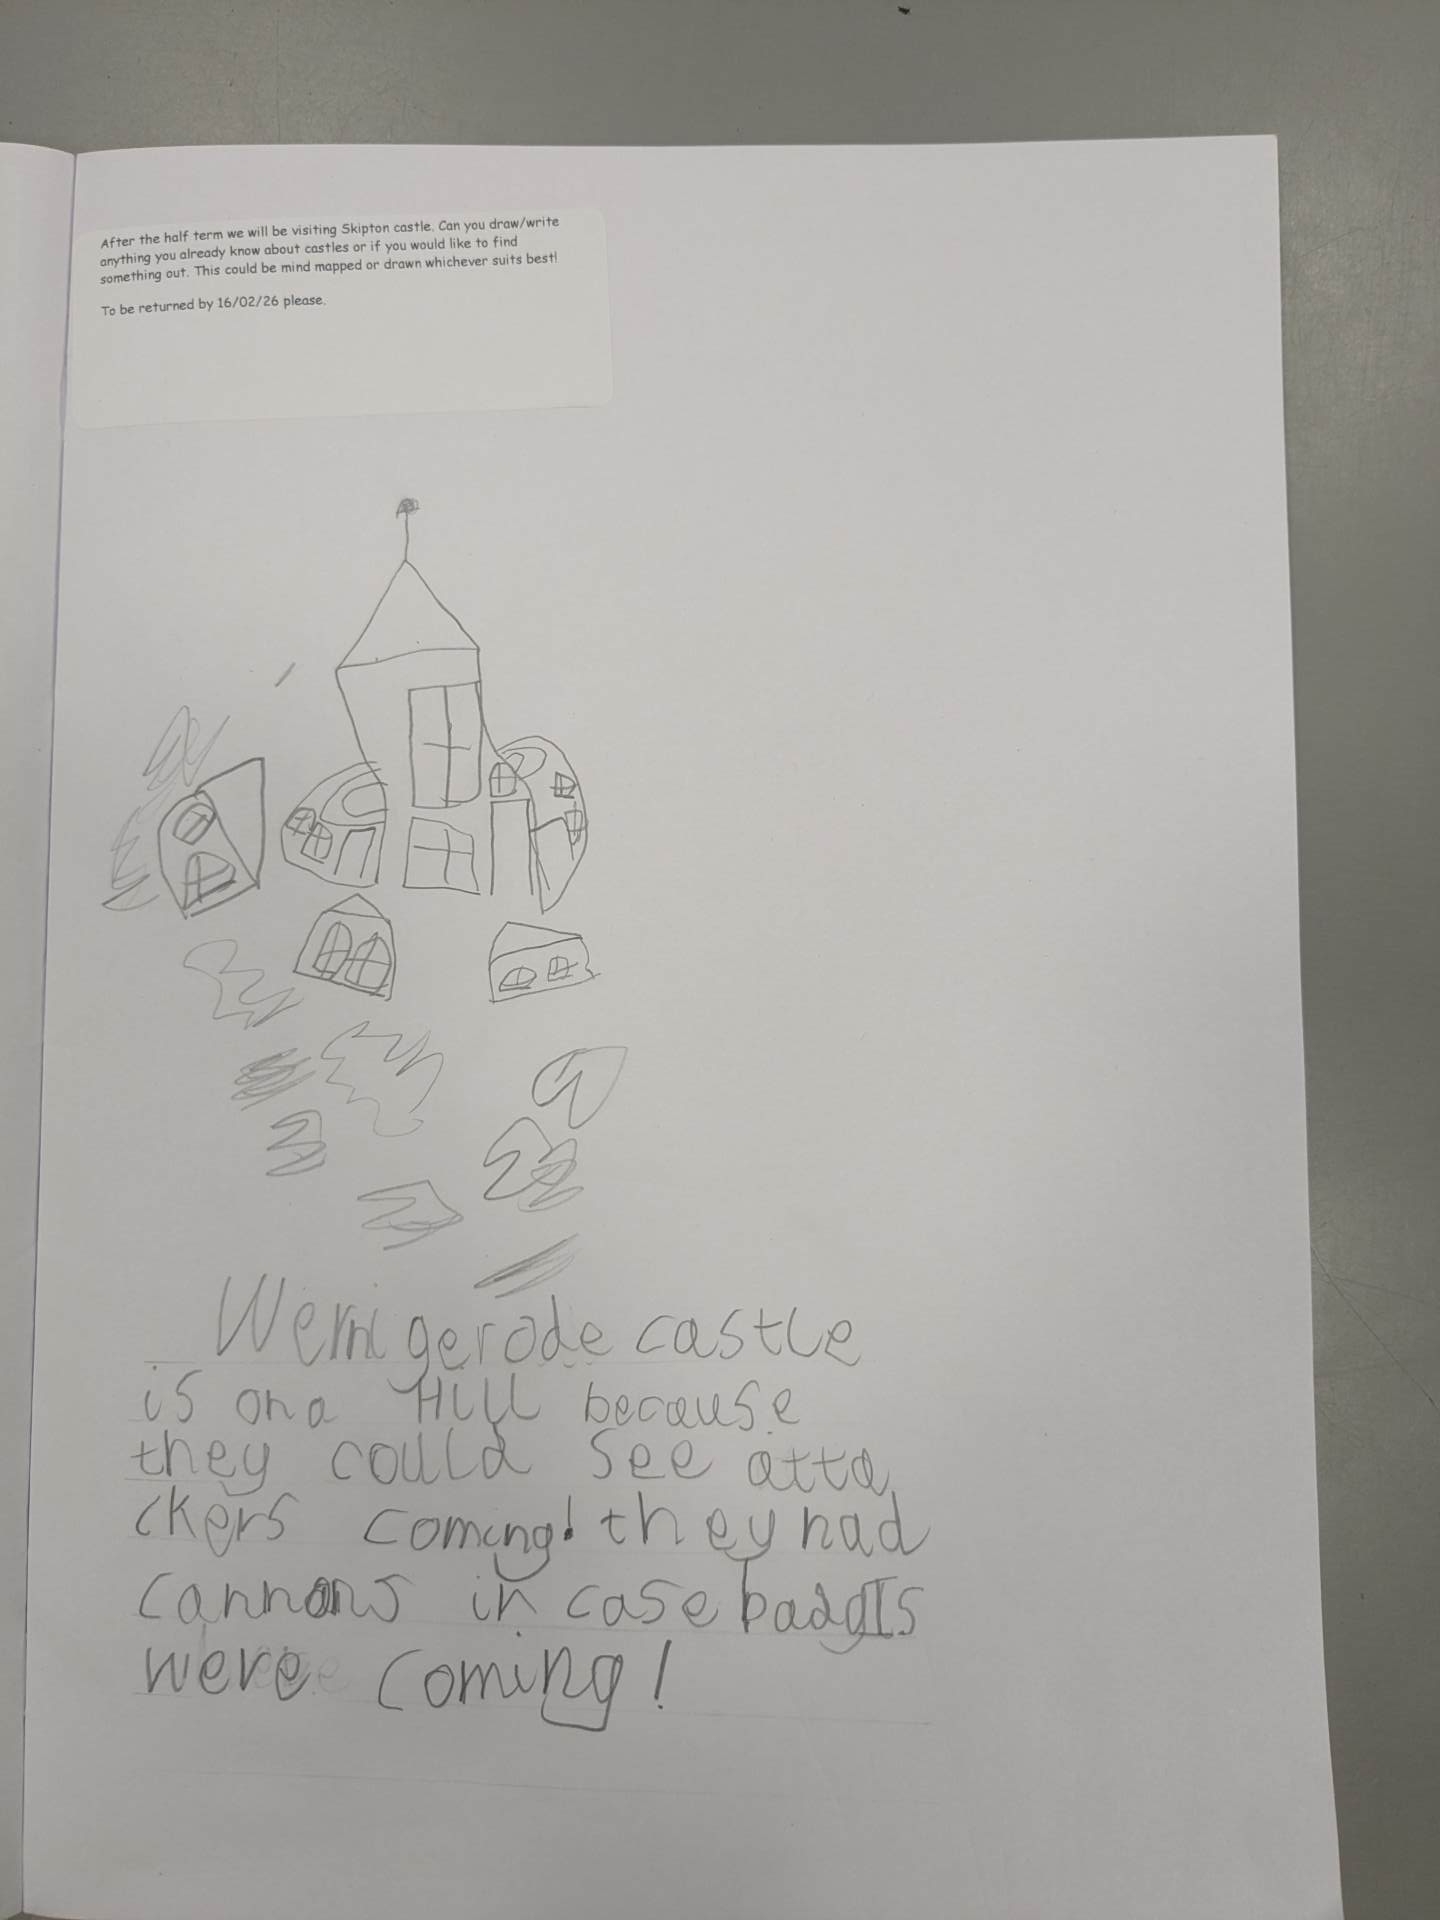 After the half term we will be visiting Skipton castle. Can you draw/write
anything you already know about castles or if you would like to find
something out. This could be mind mapped or drawn whichever suits best!
To be returned by 16/02/26 please.
Wernigerode castle
is on a Hill because
they could see atta
ckers coming! they had
cannons in case
were coming!